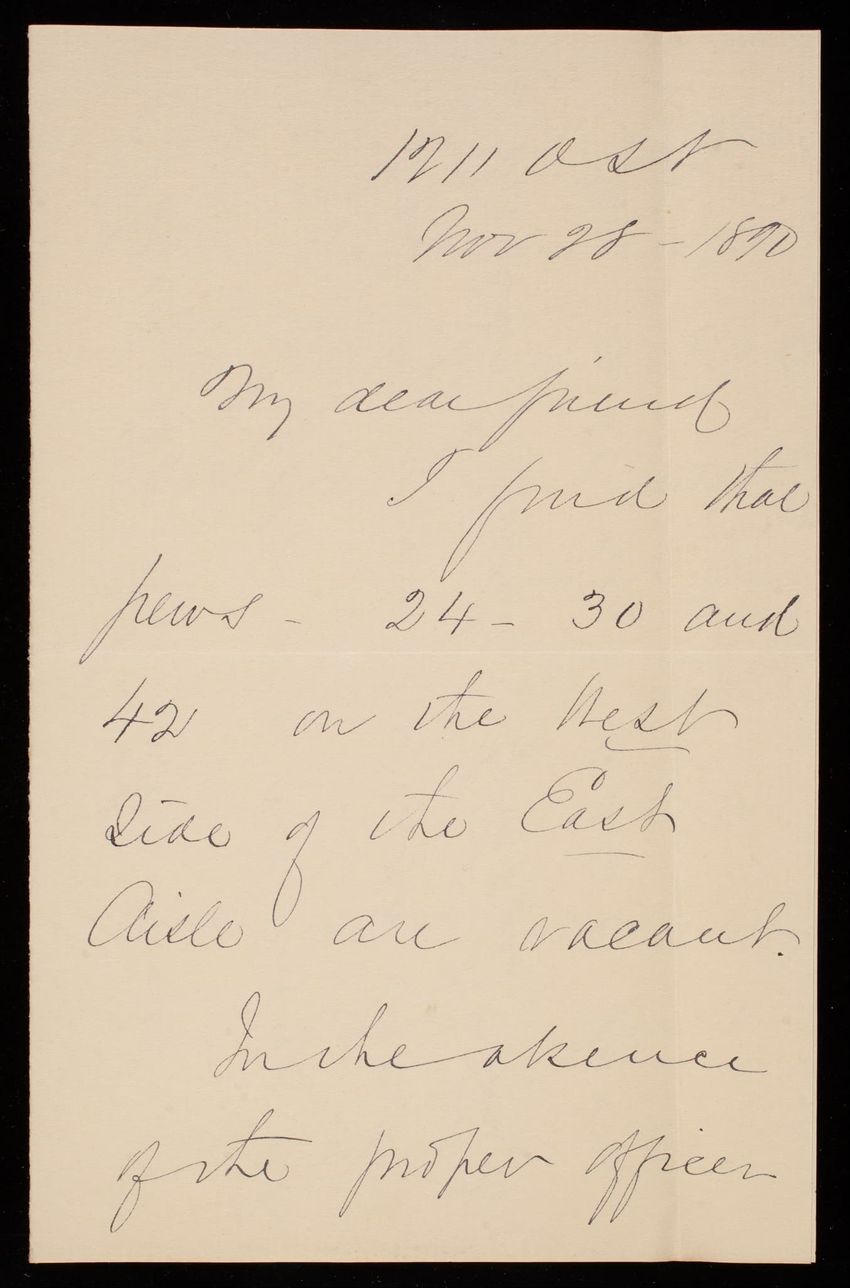 1211 O St
Nov 28 - 1890
My dear friend
I find that
pews - 24 - 30 and
42 on the West
Side of the East
Aisle are vacant.
In the absence
of the proper officer